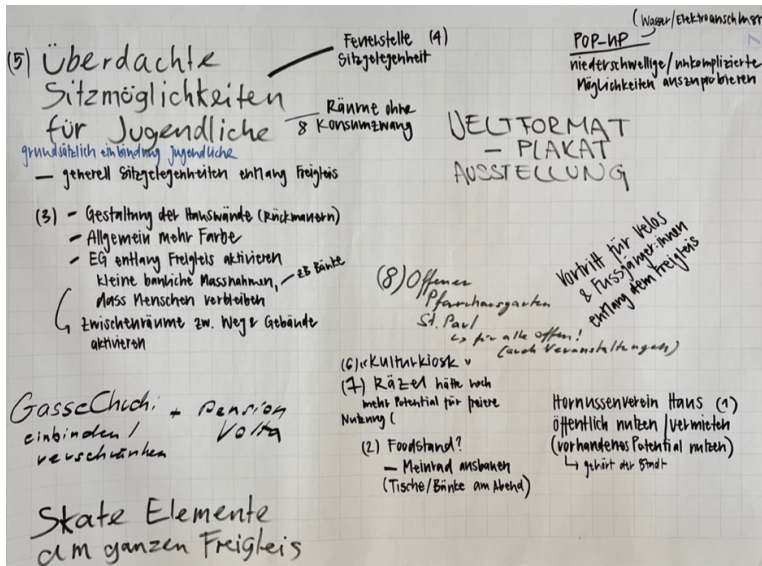 (5) Überdachte
Sitzmöglichkeiten
für Jugendliche
grundsätzlich einbindung Jugendliche
— generell Sitzgelegenheiten entlang Freigleis
Feuerstelle (4)
Sitzgelegenheit
Räume ohne
& Konsumzwang
(Wasser/Elektroanschluss
POP-UP
niederschwellige/unkomplizierte
Möglichkeiten auszuprobieren
WELTFORMAT
— PLAKAT
AUSSTELLUNG
(3) – Gestaltung der Hauswände (Rückmauern)
– Allgemein mehr Farbe
– EG entlang Freigleis aktivieren
kleine bauliche Massnahmen, – zB Bänke
dass Menschen verbleiben
Zwischenräume zw. Weg & Gebäude
aktivieren
(8) Offener
Pfarrhausgarten
St. Paul
↳ für alle offen!
(auch Veranstaltungen)
Vortritt für Velos
& Fussgänger:innen
entlang dem Freigleis
(6) «Kulturkiosk»
(7) Räzel hätte noch
mehr Potential für freiere
Nutzung (
(2) Foodstand?
– Meinrad ausbauen
(Tische/Bänke am Abend)
Hornussenverein Haus (1)
öffentlich nutzen/vermieten
(vorhandenes Potential nutzen)
↳ gehört der Stadt
GasseChuchi + Pension
einbinden / Volta
verschränken
Skate Elemente
am ganzen Freigleis